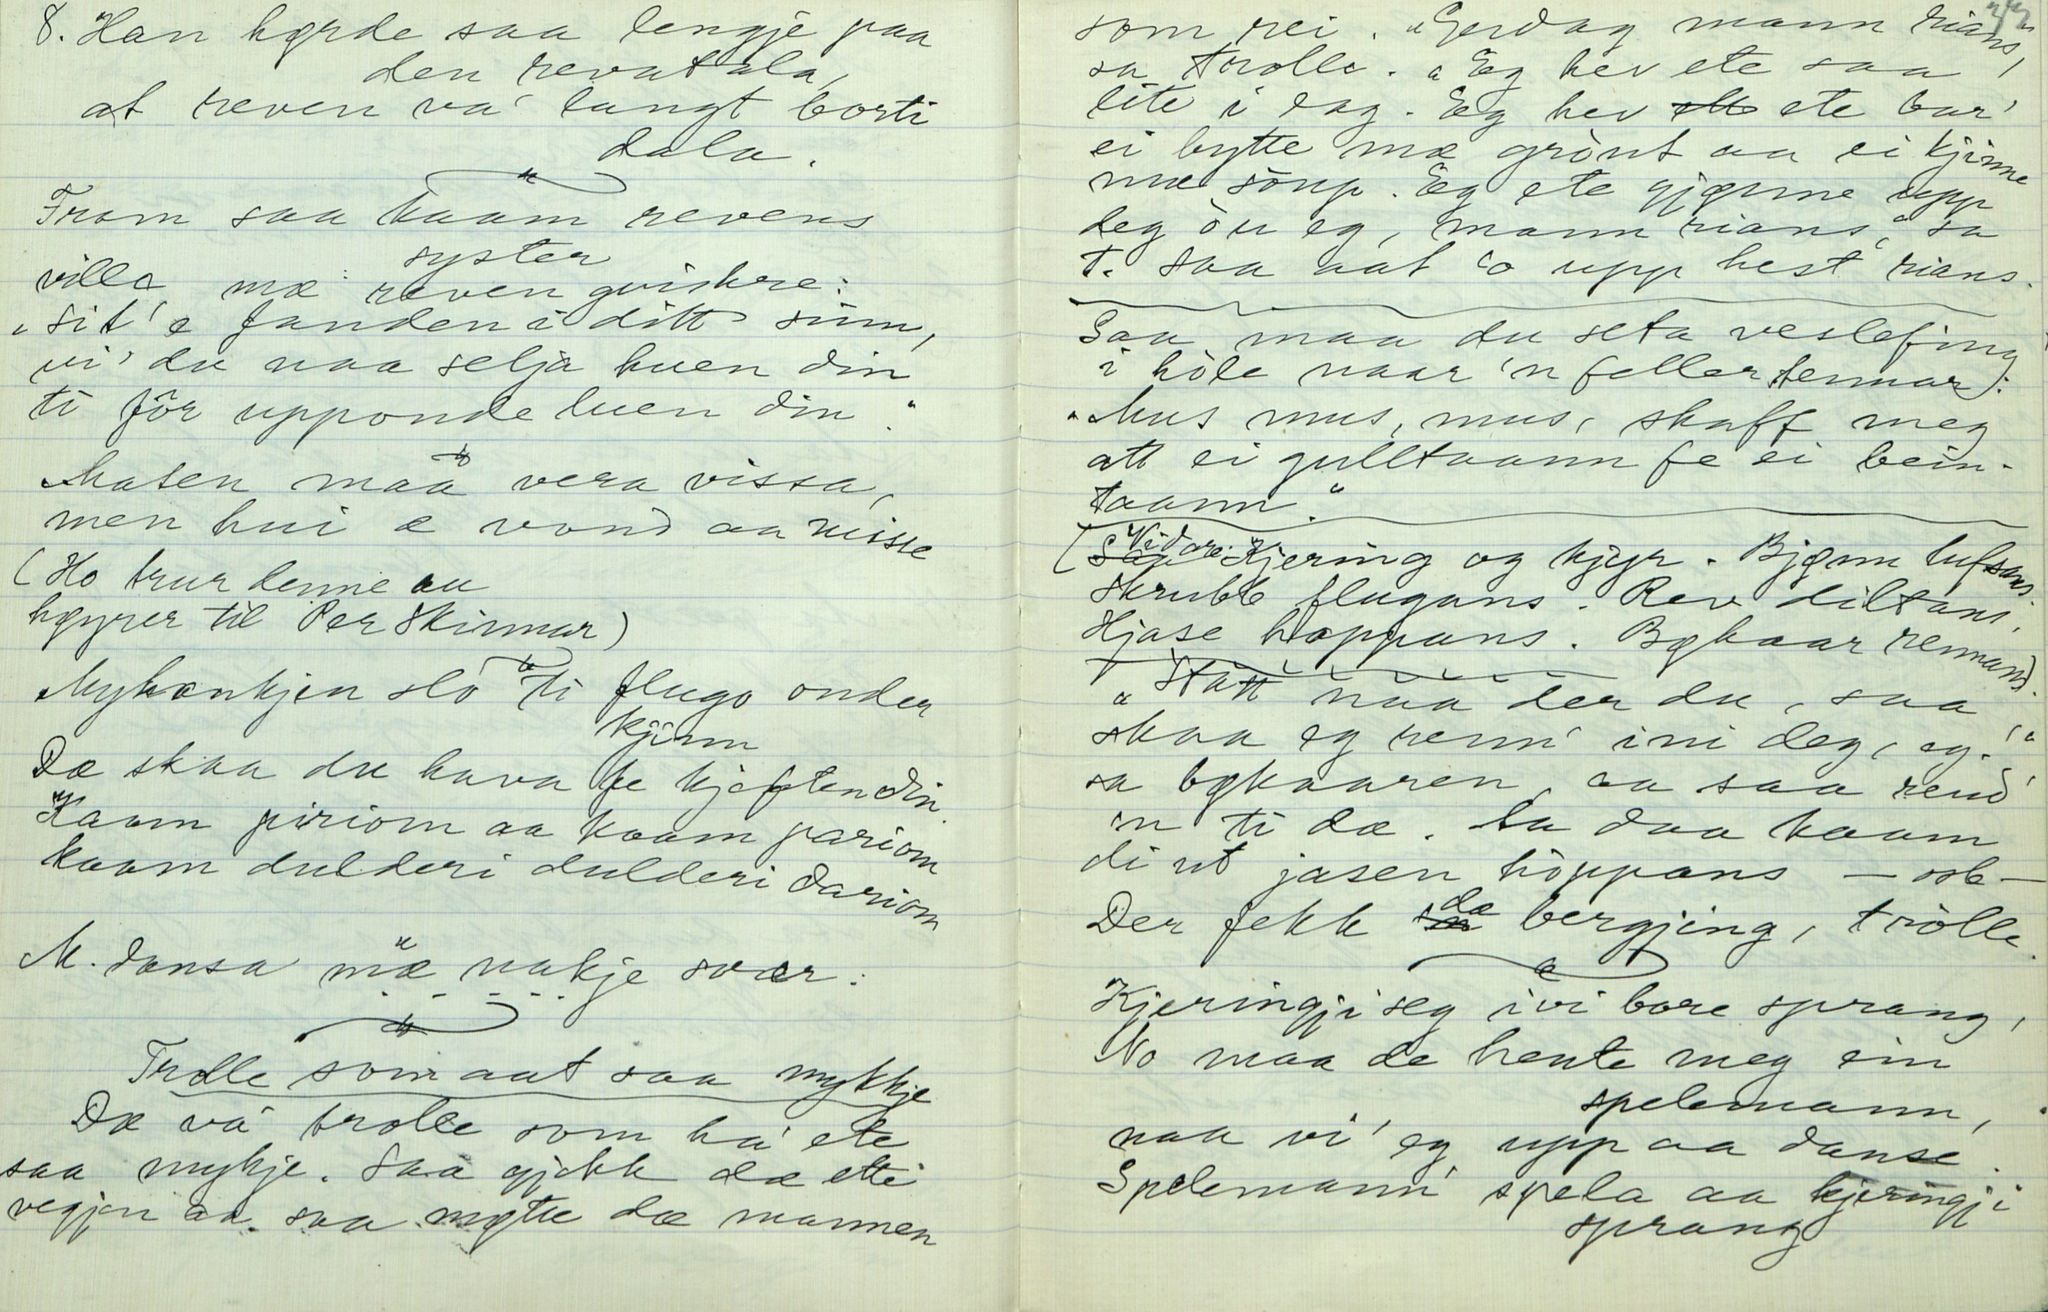 8. Han hørde saa lengje paa
den revatala,
at reven va' langt borti
dala.
Fram saa kaam revens
syster
villa mæ reven gviskre:
"Sit 'e fanden i ditt sinn,
vi' du naa selja huen din
ti fôr upponde luen din."
Maten maa vera vissa,
men hui æ vond aa misse
(Ho trur denne au
høyrer til Per Skinnar)
Myhankjen slo ti flugo onder
kjinn
Dæ skaa du hava fe kjeften din.
"Kaam piriom aa kaam pariom
kaam dulderi dulderi dariom
M. dansa mæ nakje svær:
Trolle som aat saa mykkje
Dæ va' trolle som ha' ete
saa mykje. Saa gjekk dæ etti
vegjen aa saa møtte dæ mannen
som rei. "Gordag mann rians,"
sa trolle. "Eg hev ete saa
lite i dag. Eg hev ete bar'
ei bytte mæ grönt aa ei kjinne
mæ soup. Eg ete gjønne upp
deg òu eg, mann rians," sa
T. Saa aat 'o upp hest rians.
Saa maa du seta veslefing
i hôle naar 'n feller tennar):
"Mus mus, mus, skaff meg
att ei gulltaann fe ei bein-
taann."
(Vidare: Kjering og kjyr. Bjønn lufsans.
Skrubb flugans. Rev diltans.
Hjase happans. Bøkaar rennans).
"Statt naa der du, saa
skaa eg renn' ini deg, eg!"
sa bøkaaren, aa saa rend'
'n ti dæ. Aa daa kaam
di ut jasen höppans – osb –
Der fekk dæ bergjing, trölle.
Kjeringji seg ivi bore sprang,
No maa de hente meg ein
spelemann,
naa vi' eg upp aa danse.
Spelemann' spela aa kjeringji
sprang